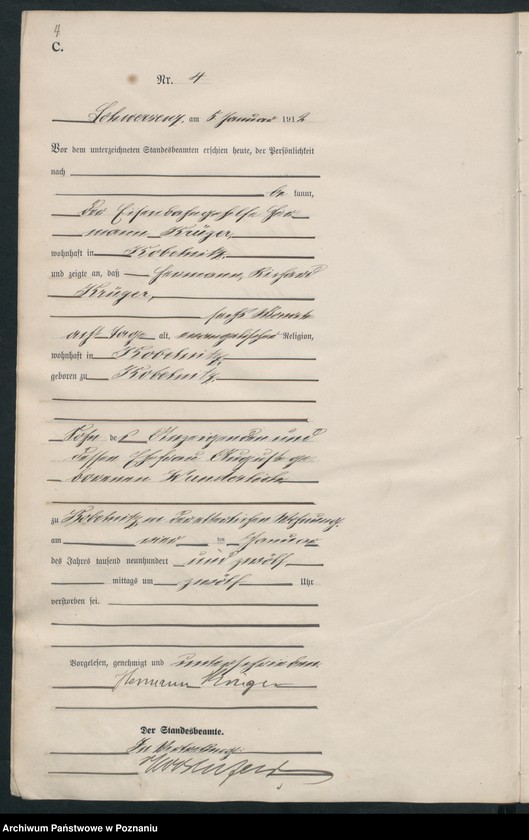 4
C.
Nr. 4
Schwersenz, am 5 Januar 1912
Vor dem unterzeichneten Standesbeamten erschien heute, der Persönlichkeit
nach
be kannt,
der Eisenbahngehilfe Her-
mann Krüger,
wohnhaft in Kobelnitz,
und zeigte an, daß Hermann, Richard
Krüger,
sechs Monate
acht Tage alt, evangelischer Religion,
wohnhaft in Kobelnitz,
geboren zu Kobelnitz,
Sohn des Anzeigenden und
dessen Ehefrau Auguste ge-
borenen Wunderlich
zu Kobelnitz in der elterlichen Wohnung,
am vier ten Januar
des Jahres tausend neunhundert und zwölf
mittags um zwölf Uhr
verstorben sei.
Vorgelesen, genehmigt und unterschrieben
Hermann Krüger
Der Standesbeamte.
In Vertretung:
Archiwum Państwowe w Poznaniu